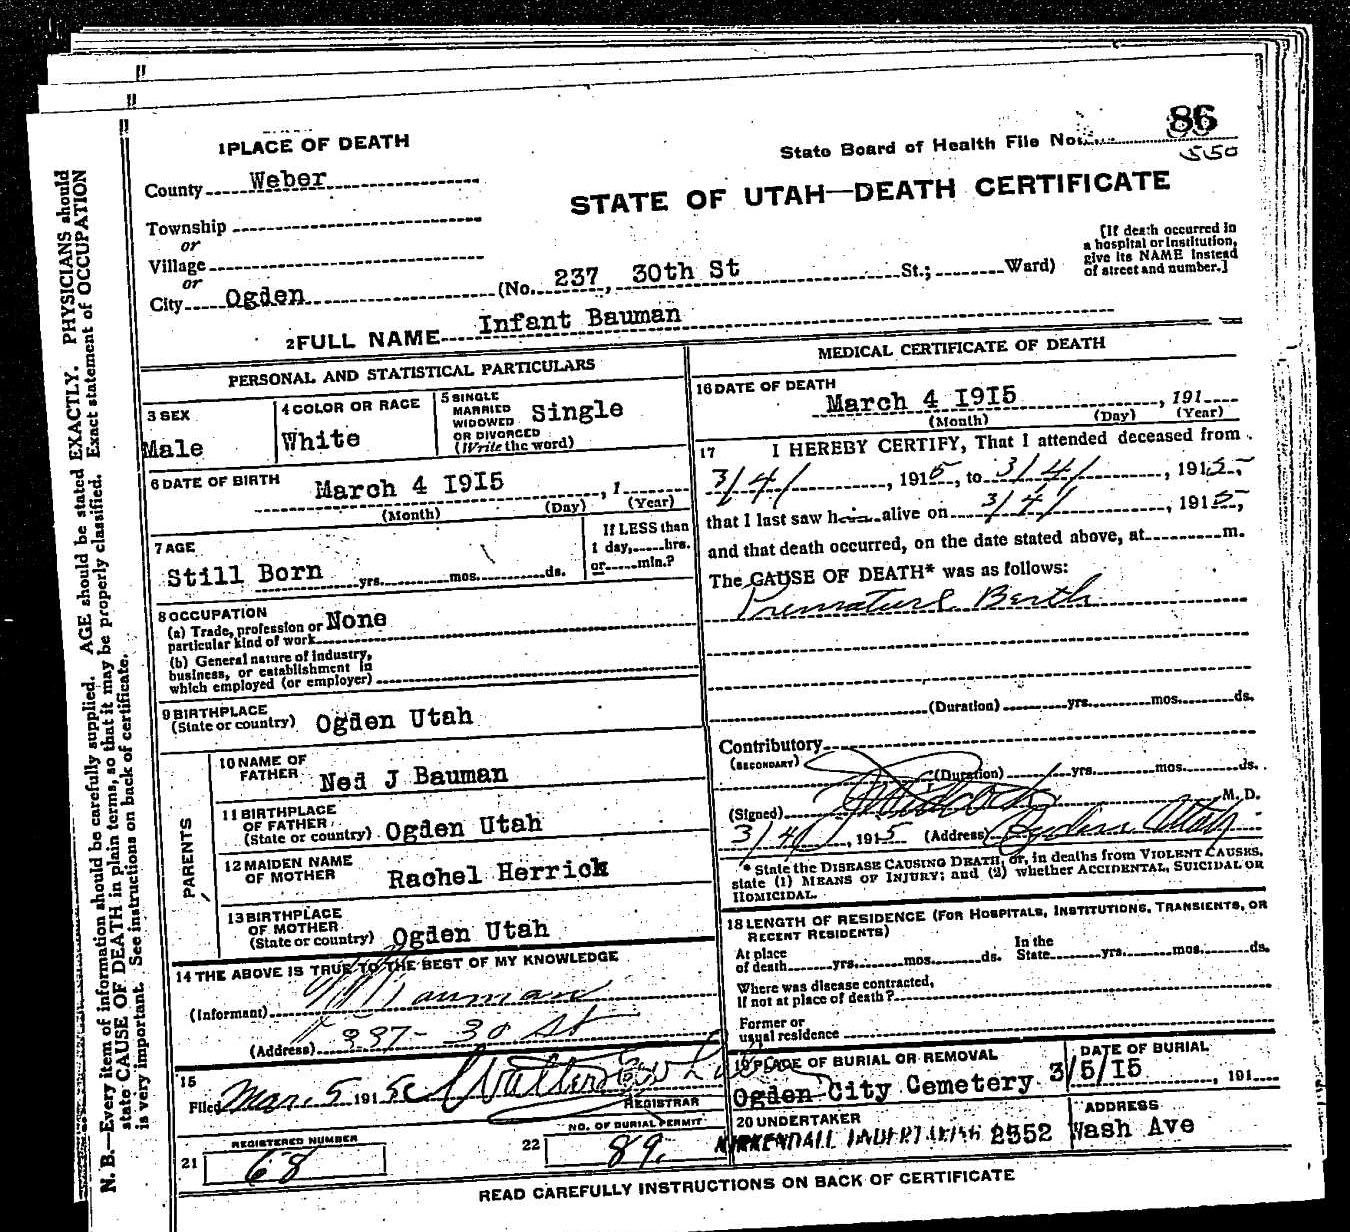 1 PLACE OF DEATH
State Board of Health File No. 86
550
County Weber
STATE OF UTAH—DEATH CERTIFICATE
Township
or
Village
or
City Ogden (No. 237, 30th St St.; Ward)
[If death occurred in
a hospital or institution,
give its NAME instead
of street and number.]
2 FULL NAME Infant Bauman
PERSONAL AND STATISTICAL PARTICULARS
3 SEX
Male
4 COLOR OR RACE
White
5 SINGLE
MARRIED
WIDOWED
OR DIVORCED
(Write the word)
Single
6 DATE OF BIRTH
March 4 I9I5 , 1
(Month) (Day) (Year)
7 AGE
Still Born yrs. mos. ds.
If LESS than
1 day, hrs.
or min.?
8 OCCUPATION
(a) Trade, profession or
particular kind of work
None
(b) General nature of industry,
business, or establishment in
which employed (or employer)
9 BIRTHPLACE
(State or country) Ogden Utah
PARENTS
10 NAME OF
FATHER Ned J Bauman
11 BIRTHPLACE
OF FATHER
(State or country) Ogden Utah
12 MAIDEN NAME
OF MOTHER Rachel Herrick
13 BIRTHPLACE
OF MOTHER
(State or country) Ogden Utah
14 THE ABOVE IS TRUE TO THE BEST OF MY KNOWLEDGE
(Informant) Bauman
(Address) 237- 30 St
15
Filed Mar. 5 1915 Walter
REGISTRAR
21 REGISTERED NUMBER
68
22 NO. OF BURIAL PERMIT
89.
MEDICAL CERTIFICATE OF DEATH
16 DATE OF DEATH
March 4 I9I5 , 191
(Month) (Day) (Year)
17 I HEREBY CERTIFY, That I attended deceased from
3/4/ , 1915, to 3/4/ , 1915,
that I last saw him alive on 3/4/ , 1915,
and that death occurred, on the date stated above, at m.
The CAUSE OF DEATH* was as follows:
Premature Berth
(Duration) yrs. mos. ds.
Contributory
(SECONDARY)
(Duration) yrs. mos. ds.
(Signed) M. D.
3/4/ , 1915 (Address) Ogden Utah
* State the DISEASE CAUSING DEATH, or, in deaths from VIOLENT CAUSES,
state (1) MEANS OF INJURY; and (2) whether ACCIDENTAL, SUICIDAL OR
HOMICIDAL.
18 LENGTH OF RESIDENCE (FOR HOSPITALS, INSTITUTIONS, TRANSIENTS, OR
RECENT RESIDENTS)
At place
of death yrs. mos. ds.
In the
State yrs. mos. ds.
Where was disease contracted,
If not at place of death?
Former or
usual residence
19 PLACE OF BURIAL OR REMOVAL
Ogden City Cemetery
DATE OF BURIAL
3/5/I5 , 191
20 UNDERTAKER
KIRKENDALL UNDERTAKING 2552
ADDRESS
Wash Ave
READ CAREFULLY INSTRUCTIONS ON BACK OF CERTIFICATE
N. B.—Every item of information should be carefully supplied. AGE should be stated EXACTLY. PHYSICIANS should
state CAUSE OF DEATH in plain terms, so that it may be properly classified. Exact statement of OCCUPATION
is very important. See instructions on back of certificate.